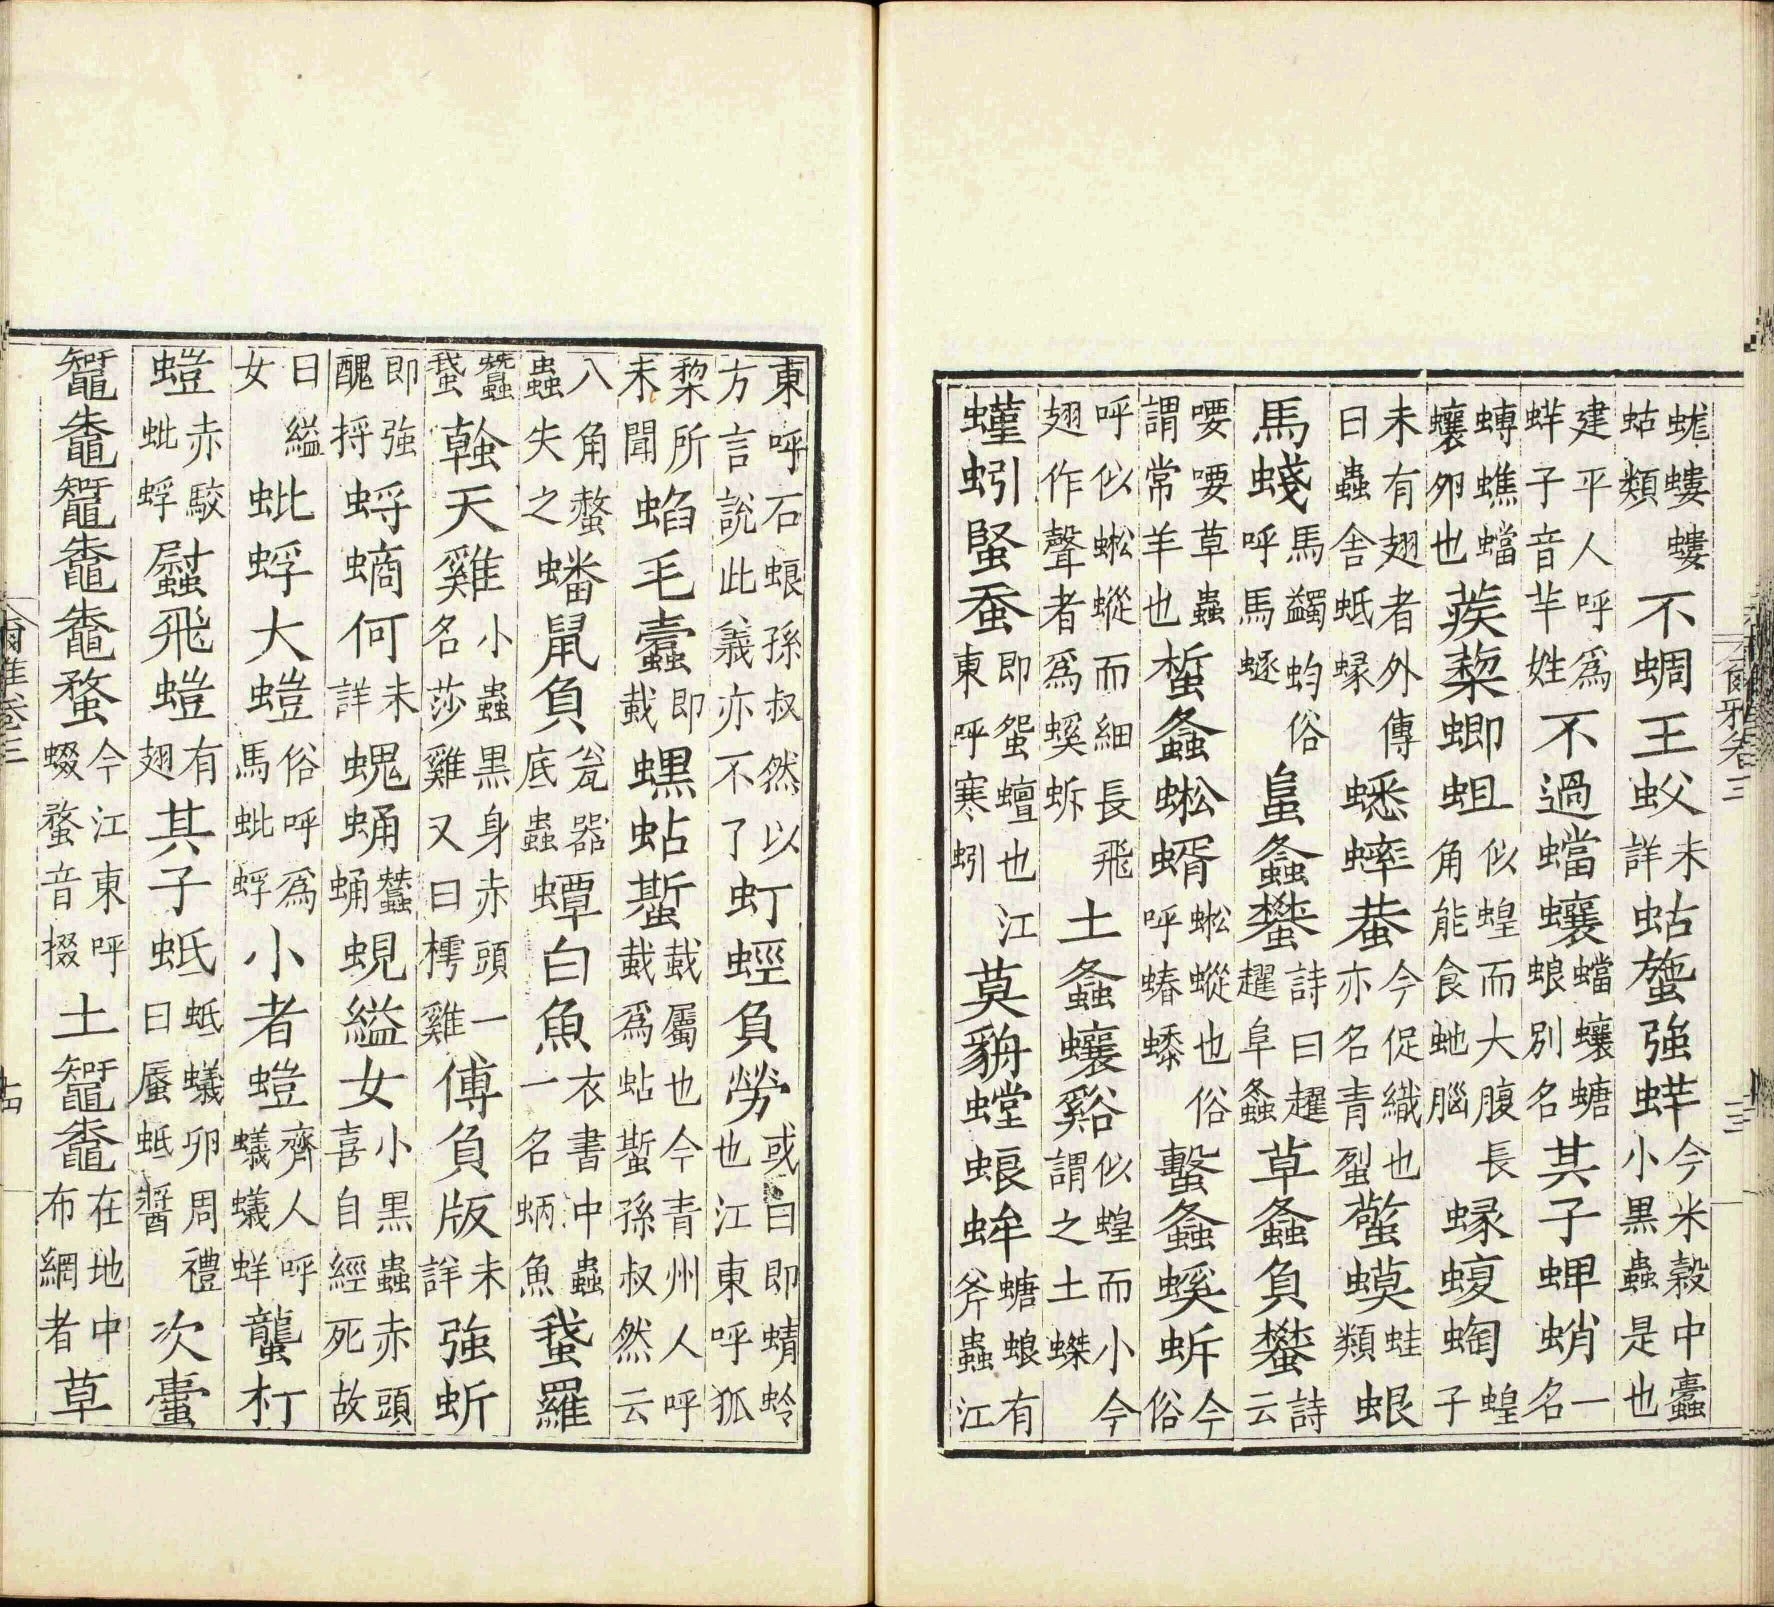 蛖螻螻蛄類不蜩王蚥未詳蛄䗐強蛘今米穀中蠹小黑蟲是也
建平人呼爲蛘子音羋姓不過蟷蠰蟷蠰螗蜋別名其子蜱蛸一名
䗚蟭蟷蠰卵也蒺蔾蝍蛆似蝗而大腹長角能食虵腦蝝蝮蜪蝗子
未有翅者外傳曰蟲舍蚳蝝蟋蟀蛬今促織也亦名青䖽蟼蟆蛙類蛝
馬䗃馬蠲蚐俗呼馬䘂螽蠜詩曰趯趯阜螽草螽負蠜詩云
喓喓草蟲謂常羊也蜤螽蜙蝑蜙䗥也俗呼蝽蟍蟿螽螇蚸今俗
呼似蜙䗥而細長飛翅作聲者爲螇蚸土螽蠰谿似蝗而小今謂之土
螼蚓蜸蚕即蛩蟺也江東呼寒蚓莫貈螳蜋蛑螗蜋有斧蟲江
東呼石蜋孫叔然以方言說此義亦不了虰蛵負勞或曰即蜻蛉也江東呼狐
棃所未聞蜭毛蠹即蛓蟔蛅蟴蛓屬也今青州人呼蛓爲蛅蟴孫叔然云
八角螫蟲失之蟠鼠負瓮器底蟲蟫白魚衣書中蟲一名蛃魚䖸羅
蠶䖸螒天雞小蟲黑身赤頭一名莎雞又曰樗雞傅負版未詳強蚚
即強醜捋蛶螪何未詳螝蛹蠶蛹蜆縊女小黑蟲赤頭喜自經死故
曰縊女蚍蜉大螘俗呼爲馬蚍蜉小者螘齊人呼蟻蟻蛘蠪朾
螘赤駮蚍蜉飛螘有翅其子蚳蚳蟻卵周禮曰蜃蚳醬次蟗
鼅鼄鼅鼄鼄蝥今江東呼蝃蝥音掇土鼅鼄在地中布網者草